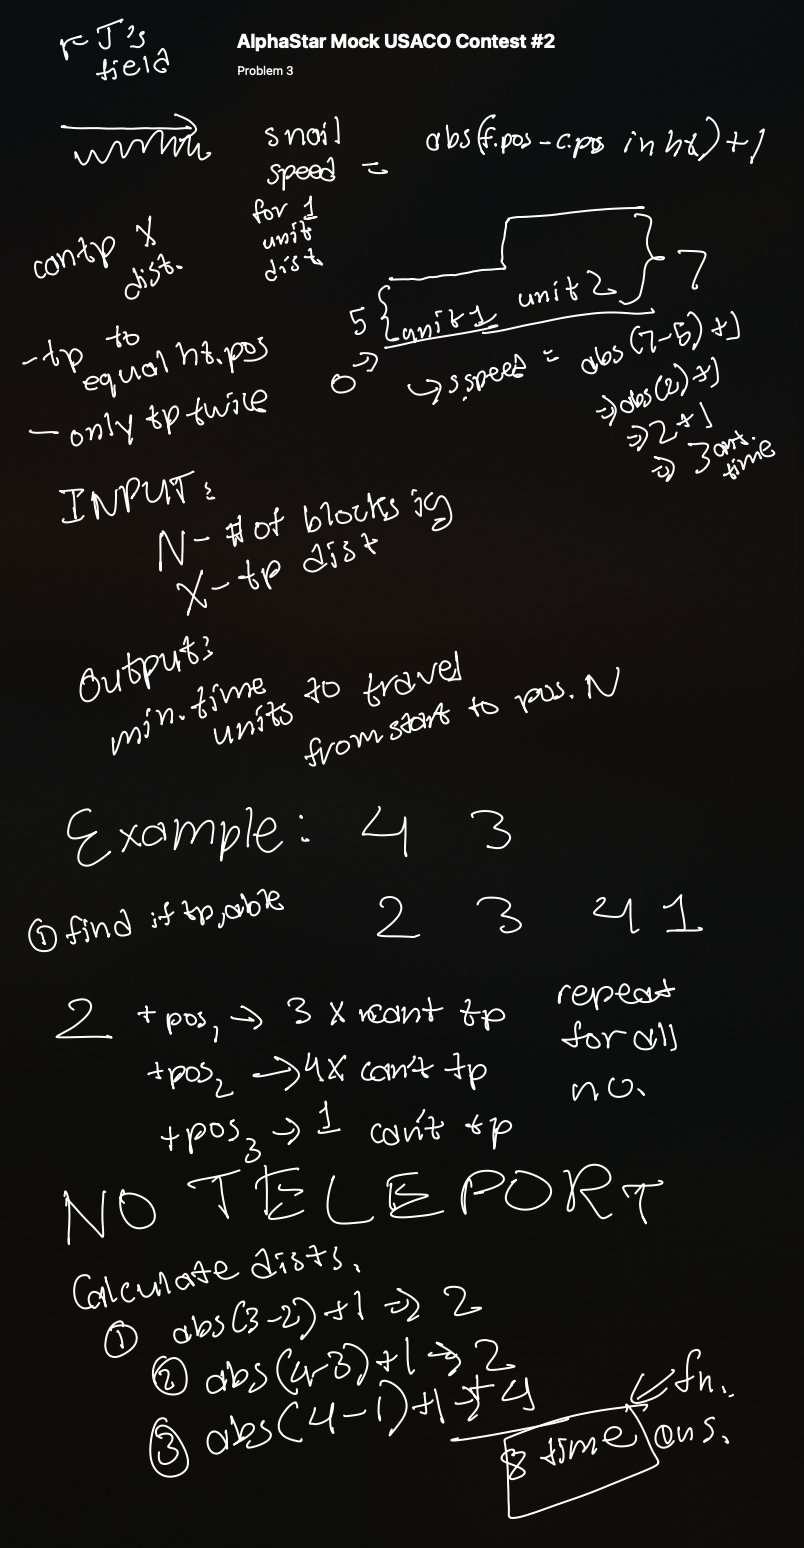 r J's
field
AlphaStar Mock USACO Contest #2
Problem 3
snail
speed =
for 1
unit
dist
abs(f.pos - c.pos in ht) + 1
can tp X
dist.
5 unit 1 unit 2 7
0 →
- tp to
equal ht. pos
- only tp twice
↳ s.speed = abs(7-5)+1
⇒ abs(2)+1
⇒ 2+1
⇒ 3 unt.
time
INPUT:
N - # of blocks ig
X - tp dist
Output:
min. time
units to travel
from start to pos. N
Example: 4 3
① find if tp,able 2 3 4 1
2 + pos₁ → 3 X can't tp
+pos₂ → 4X can't tp
+pos₃ → 1 can't tp
repeat
for all
no.
NO TELEPORT
Calculate dists.
① abs(3-2)+1 ⇒ 2
② abs(4-3)+1 → 2
③ abs(4-1)+1 → + 4
8 time
fn.
ans.